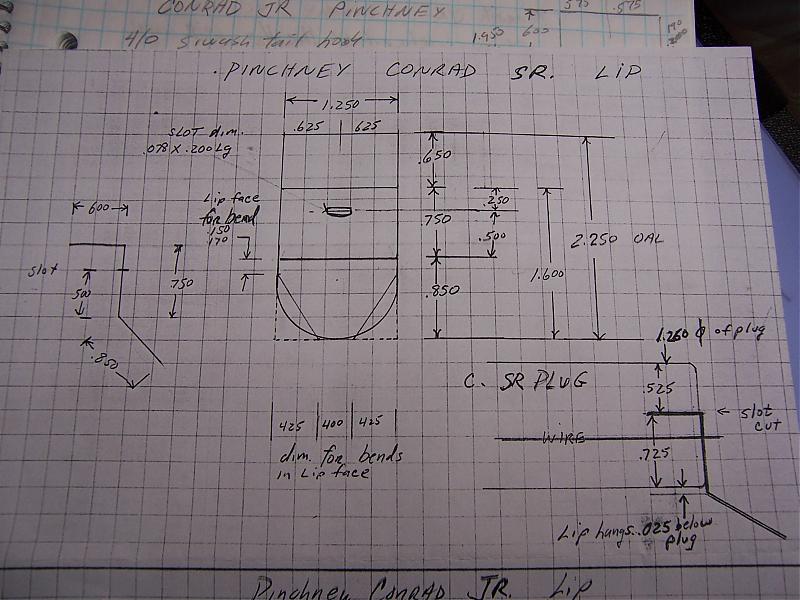 CONRAD JR PINCHNEY
4/0 siwash tail hook
1.450
600
.575 .575
.PINCHNEY CONRAD SR. LIP
1.250
.625 .625
SLOT dim.
.078 X .200 Lg
.650
Lip face
for bend
.150
170
600
.250
.750
.500
2.250 OAL
1.600
slot
500
.750
.850
.850
1.250 ϕ of plug
C. SR PLUG
.525
slot
cut
WIRE
.725
425 400 425
dim. for bends
in Lip face
Lip hangs .025 below
plug
Pinchney CONRAD JR. Lip